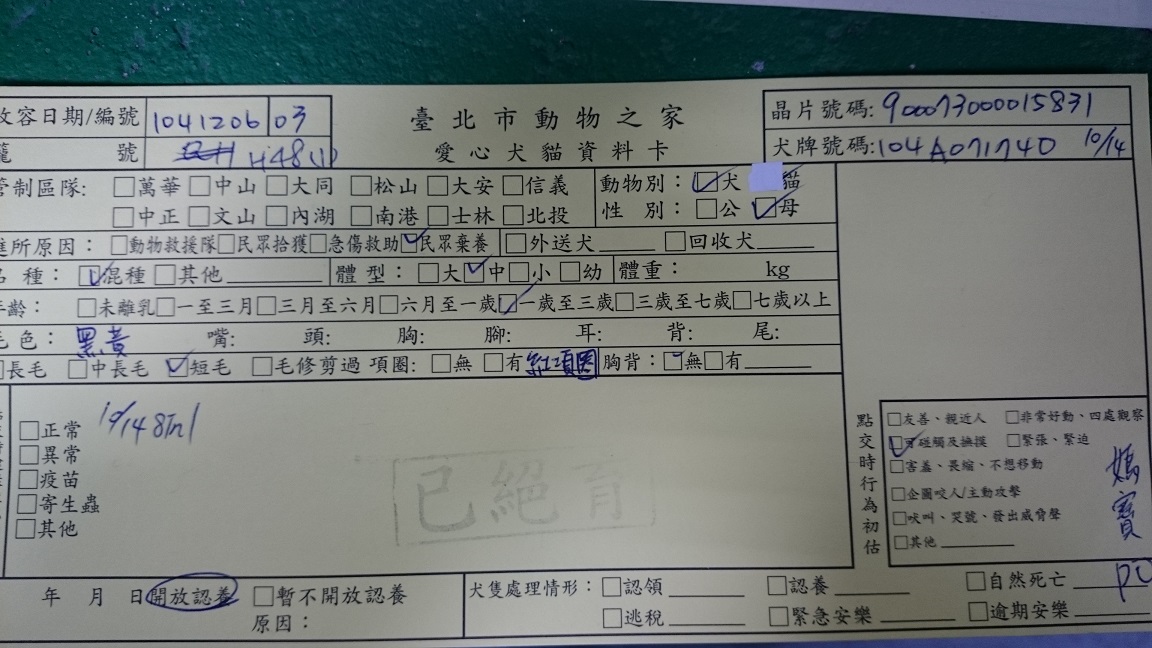 收容日期/編號 1041206 03
臺北市動物之家
晶片號碼: 900073000015831
籠 號 H48
愛心犬貓資料卡
犬牌號碼: 104A071740 10/14
管制區隊: □萬華 □中山 □大同 □松山 □大安 □信義
動物別: ☑犬 貓
□中正 □文山 □內湖 □南港 □士林 □北投
性 別: □公 ☑母
進所原因: □動物救援隊 □民眾拾獲 □急傷救助 ☑民眾棄養 □外送犬 □回收犬
品 種: ☑混種 □其他 體 型: □大 ☑中 □小 □幼 體重: kg
年齡: □未離乳 □一至三月 □三月至六月 □六月至一歲 ☑一歲至三歲 □三歲至七歲 □七歲以上
毛色: 黑黃 嘴: 頭: 胸: 腳: 耳: 背: 尾:
□長毛 □中長毛 ☑短毛 □毛修剪過 項圈: □無 □有 紅項圈 胸背: ☑無 □有
□正常 10/14 8in1
□異常
□疫苗
□寄生蟲
□其他
已絕育
點交時行為初估
□友善、親近人 □非常好動、四處觀察
☑可碰觸及撫摸 □緊張、緊迫
□害羞、畏縮、不想移動
□企圖咬人/主動攻擊
□吠叫、哭號、發出威脅聲
□其他
媽寶
年 月 日 開放認養 □暫不開放認養
原因:
犬隻處理情形: □認領 □認養 □自然死亡
□逃稅 □緊急安樂 □逾期安樂